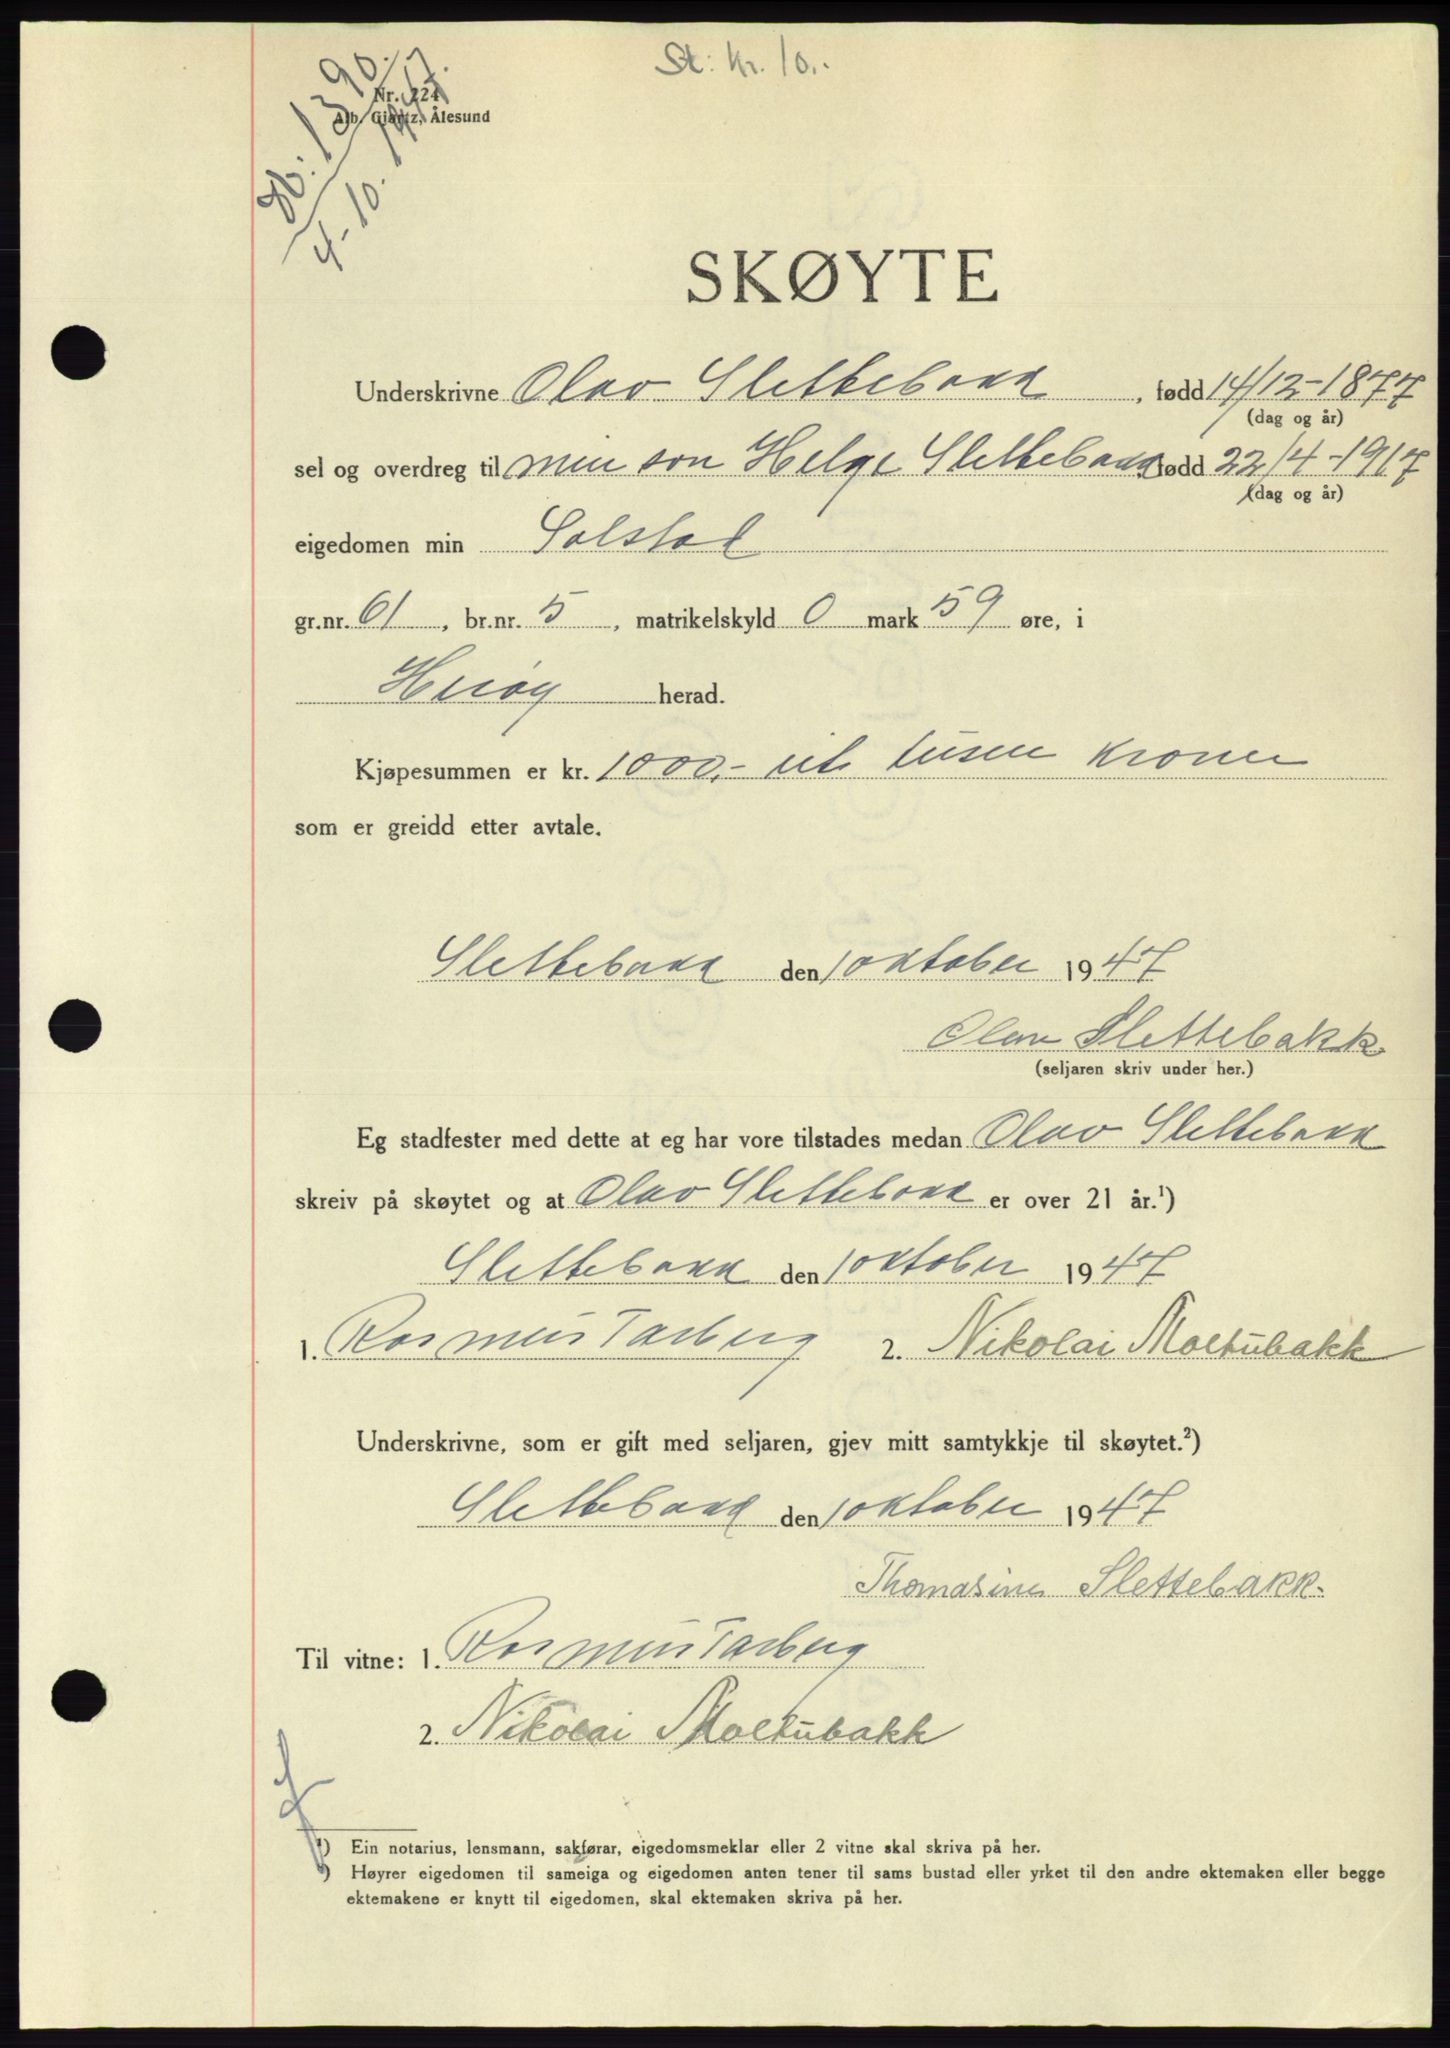 St: Kr. 10,-
Nr. 224
Alb. Gjørtz, Ålesund
Db: 1390.
4-10-1947.
SKØYTE
Underskrivne Olav Slettebakk, fødd 14/12-1877
(dag og år)
sel og overdreg til min son Helge Slettebakk fødd 22/4-1917
(dag og år)
eigedomen min Solstad
gr.nr. 61, br.nr. 5, matrikelskyld 0 mark 59 øre, i
Herøy herad.
Kjøpesummen er kr. 1000,- eit tusen kroner
som er greidd etter avtale.
Slettebakk den 1 oktober 1947
Olav Slettebakk.
(seljaren skriv under her.)
Eg stadfester med dette at eg har vore tilstades medan Olav Slettebakk
skreiv på skøytet og at Olav Slettebakk er over 21 år.¹)
Slettebakk den 1 oktober 1947
1. Rasmus Tarberg 2. Nikolai Moltubakk
Underskrivne, som er gift med seljaren, gjev mitt samtykkje til skøytet.²)
Slettebakk den 1 oktober 1947
Thomasine Slettebakk.
Til vitne: 1. Rasmus Tarberg
2. Nikolai Moltubakk
¹) Ein notarius, lensmann, sakførar, eigedomsmeklar eller 2 vitne skal skriva på her.
²) Høyrer eigedomen til sameiga og eigedomen anten tener til sams bustad eller yrket til den andre ektemaken eller begge
ektemakene er knytt til eigedomen, skal ektemaken skriva på her.